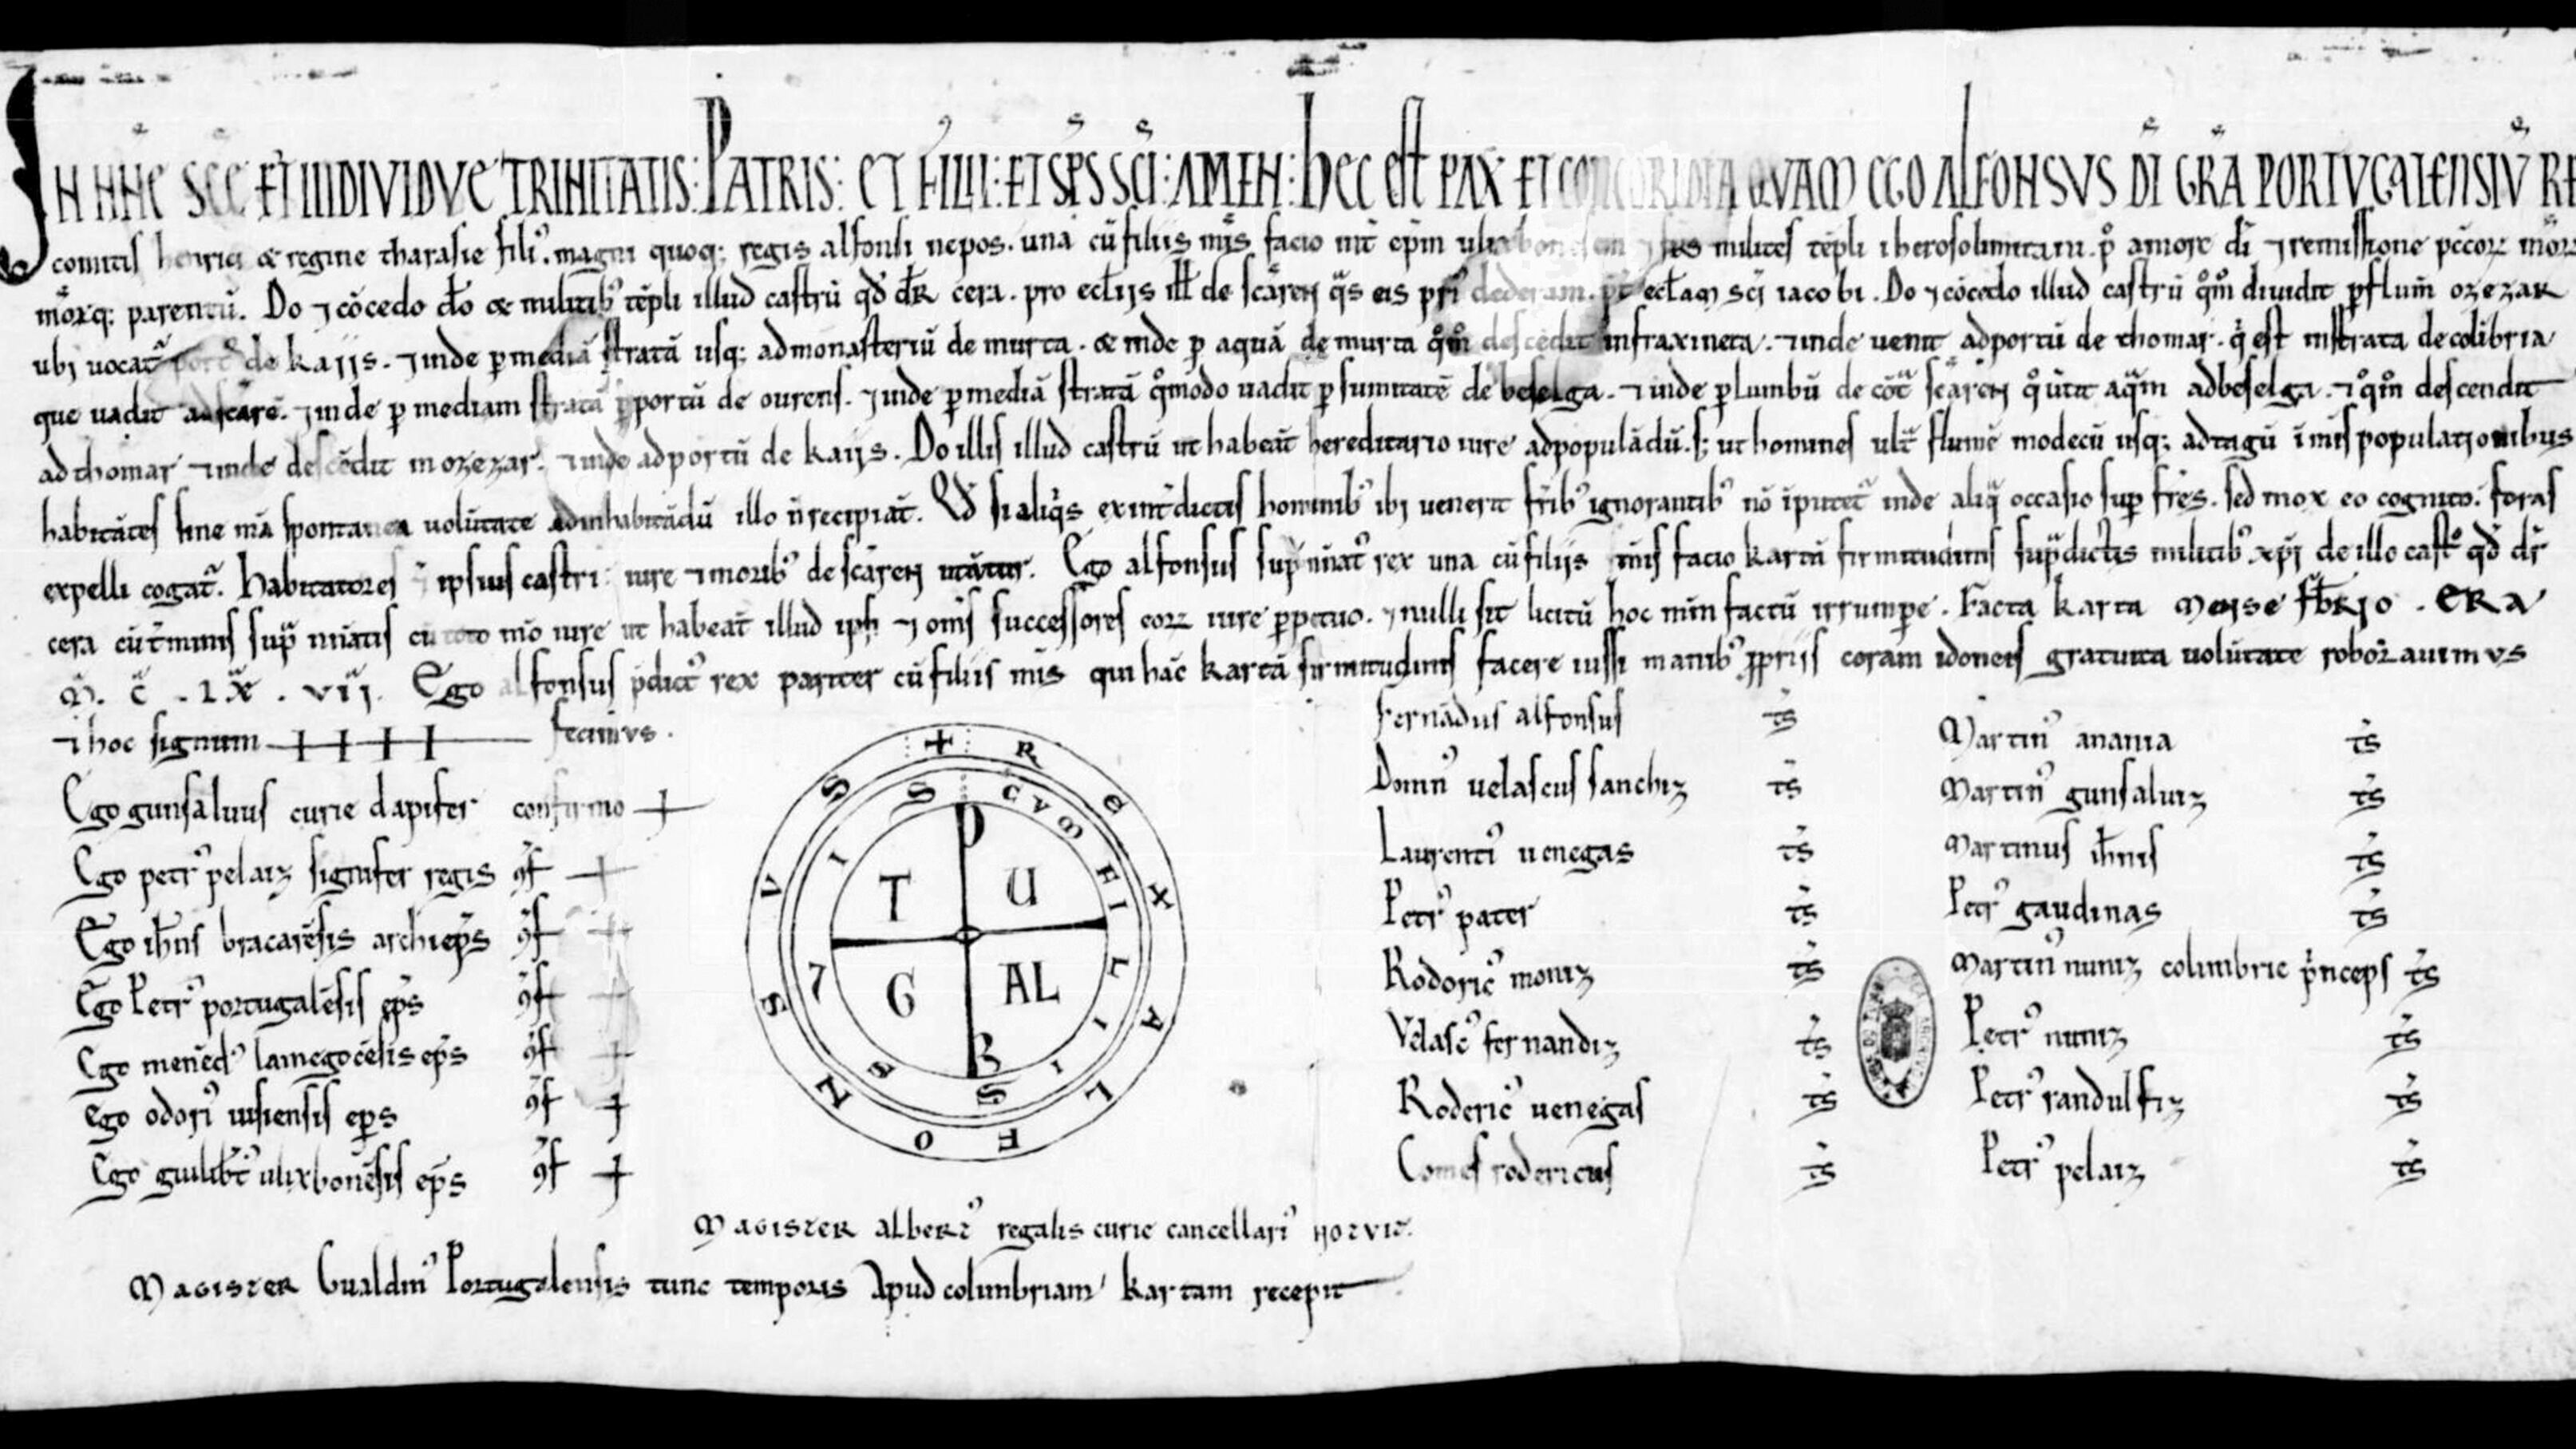 IN NNE SCE ET INDIVIDVE TRINITATIS: PATRIS: ET FILII: ET SPS SCI: AMEN: hEC EST PAX ET CONCORDIA QVAM EGO ALFONSVS DI GRA PORTVGALENSIV RE
comitis henrici & regine tharasie fili᾿. magni quoq; regis alfonsi nepos. una cũ filiis mĩs facio int̃ ep̃m ulixbon milites tẽpli iherosolimitani. p̃ amore dĩ ⁊ remissione pc̃coꝝ
mõrq; parentũ. Do ⁊ cõcedo dõ & militib᾿ tẽpli illud castrũ qd̃ dr̃ cera. pro ecl̃ijs ill̃ de scãren q̃s eis p̃ri dederam. p̃t ecl̃am sc̃i iacobi. Do ⁊ cõcedo illud castrũ qm̃ diuidit p̃ flum̃ ozezar
ubi uocat̃ port᾿ de kaijs. ⁊ inde p̃ mediã stratã usq; ad monasteriũ de murta. & inde p̃ aquã de murta qm̃ descẽdit in fraxineta. ⁊ inde uenit ad portũ de thomar. q̃ est in strata de colibria
que uadit ad scãrẽ. ⁊ inde p̃ mediam stratã p̃ portũ de ourens. ⁊ inde p̃ mediã stratã qõmodo uadit p̃ sumitatẽ de beselga. ⁊ inde p̃ lumbũ de cõt̃ scãren q̃ ũtit aq̃m ad beselga. ⁊ qõm descendit
ad thomar ⁊ inde descẽdit in ozezar. ⁊ inde ad portũ de kaijs. Do illis illud castrũ ut habeãt hereditario iure ad populãdũ. s; ut homines ult̃ flumẽ modecũ usq; ad tagũ ĩ mĩs populationibus
habitãtes sine mã spontanea uolũtate ad inhabitãdũ illo ñ recipiãt. Qd̃ si aliq̃s ex int̃dictis hominib᾿ ibi uenerit fr̃ib᾿ ignorantib᾿ nõ ĩputet̃ inde aliq̃ occasio sup̃ fr̃es. sed mox eo cognito. foras
expelli cogat̃. habitatores ipsius castri iure ⁊ morib᾿ de scãren utãtur. Ego alfonsus sup̃ nĩat᾿ rex una cũ filijs mĩs facio kartũ firmitudinis sup̃dictis militib᾿ xp̃i de illo castr᾿ qd̃ dr̃
cera cũ t̃minis sup̃ nĩatis cũ toto nõ iure ut habeãt illud ipsi ⁊ om̃s successores eoꝝ iure p̃petuo. ⁊ nulli sit licitũ hoc mm̃ factũ irrumpe. Facta karta Mense Fb̃Rio. ERA
M̃. C̃. LX̃. VII. Ego alfonsus p̃dict᾿ rex pariter cũ filiis mĩs qui hãc kartã firmitudinis facere iussi manib᾿ p̃priis coram idoneis gratuita uolũtate roborauimvs
⁊ hoc signum fecimvs.
Ego gunsaluus curie dapifer confirmo +
Ego petr᾿ pelaiz signifer regis ꝯf +
Ego ioh̃ns bracarẽsis archiep̃s ꝯf +
Ego Petr᾿ portugalẽsis ep̃s ꝯf +
Ego menẽd᾿ lamegocẽsis ep̃s ꝯf +
Ego odori᾿ uisiensis ep̃s ꝯf +
Ego gilib̃t᾿ ulixbonẽsis ep̃s ꝯf +
+ REX ALFONSVS
CVM FILIIS SVIS
P T U G AL R
Fernãdus alfonsus ts̃
Domn᾿ uelascus sanchiz ts̃
Laurenti᾿ uenegas ts̃
Petr᾿ pater ts̃
Rodoric᾿ moniz ts̃
Velasc᾿ fernandiz ts̃
Roderic᾿ uenegas ts̃
Comes rodericus ts̃
Martin᾿ anaiia ts̃
Martin᾿ gunsaluiz ts̃
Martinus ioh̃nis ts̃
Petr᾿ gaudinas ts̃
Martin᾿ nuniz colimbrie p̃nceps ts̃
Petr᾿ nuniz ts̃
Petr᾿ randulfiz ts̃
Petr᾿ pelaiz ts̃
MAGISTER albert᾿ regalis curie cancellari᾿ NOTVIT.
MAGISTER Gualdin᾿ Portugalensis tunc temporis Apud colimbriam kartam recepit